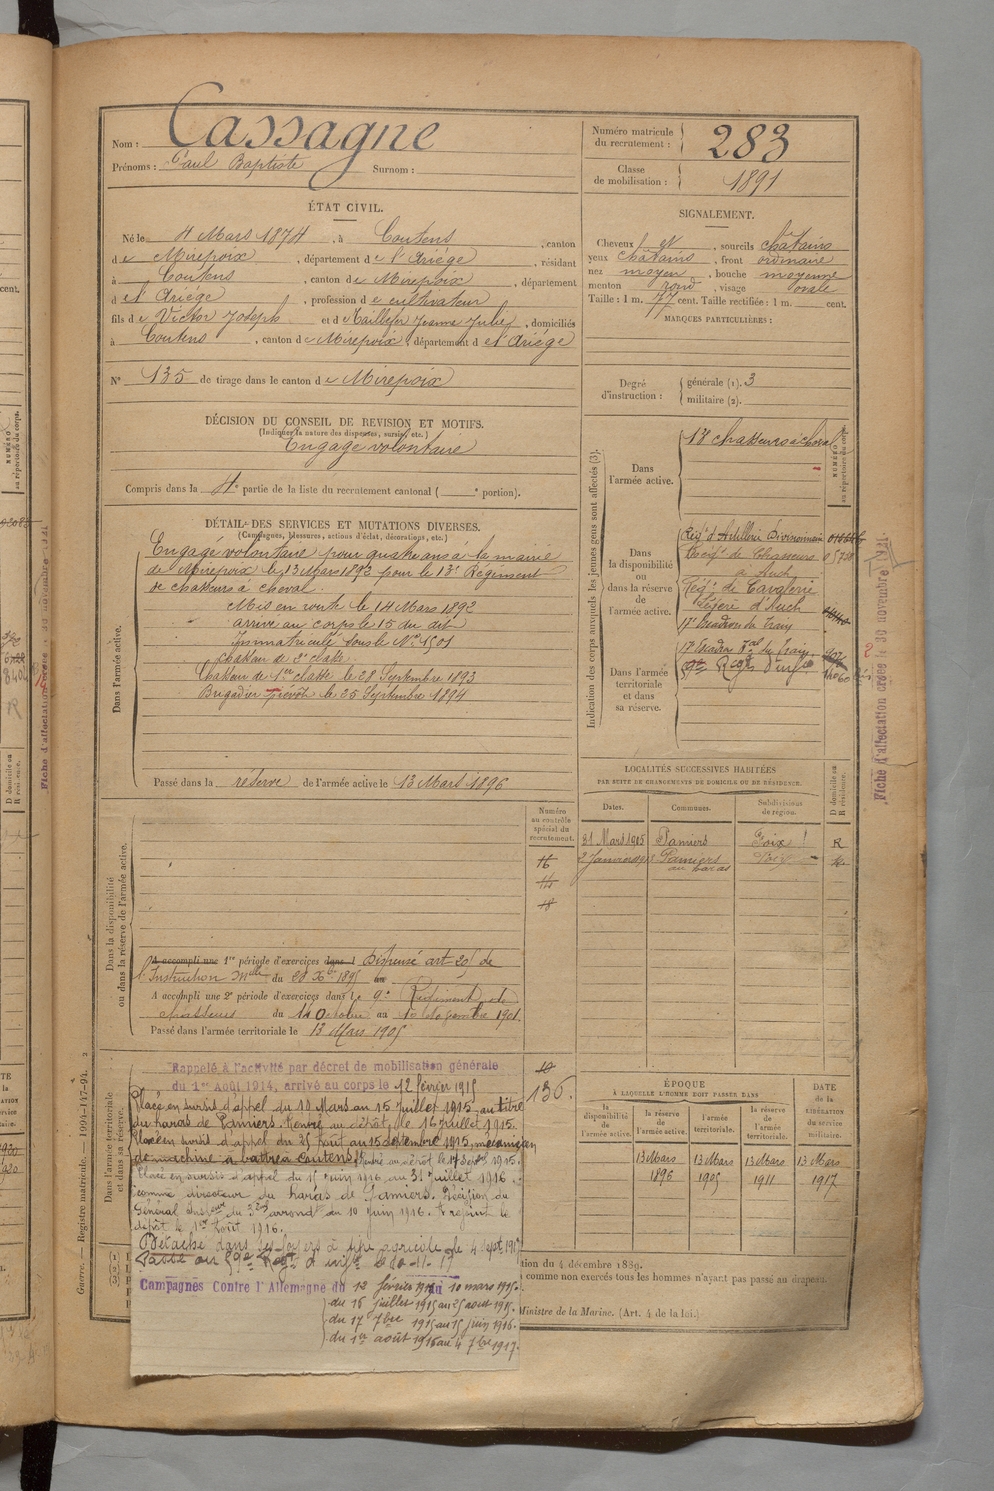 Nom : Cassagne
Prénoms : Paul Baptiste Surnom :
Numéro matricule du recrutement : 283
Classe de mobilisation : 1891
ÉTAT CIVIL.
Né le 4 Mars 1874, à Coutens, canton
de Mirepoix, département de l'Ariége, résidant
à Coutens, canton de Mirepoix, département
d el'Ariége, profession de cultivateur
fils de Victor Joseph et de Tailhefer Jeanne Julie, domiciliés
à Coutens, canton de Mirepoix, département d el'Ariége
N° 135 de tirage dans le canton de Mirepoix
SIGNALEMENT.
Cheveux, sourcils châtains
yeux châtains, front ordinaire
nez moyen, bouche moyenne
menton rond, visage ovale
Taille : 1 m. 77 cent. Taille rectifiée : 1 m. cent.
MARQUES PARTICULIÈRES :
Degré d'instruction : générale (1). 3
militaire (2).
DÉCISION DU CONSEIL DE REVISION ET MOTIFS.
(Indiquer la nature des dispenses, sursis, etc.)
Engagé volontaire
Compris dans la 4e partie de la liste du recrutement cantonal ( e portion).
DÉTAIL DES SERVICES ET MUTATIONS DIVERSES.
(Campagnes, blessures, actions d'éclat, décorations, etc.)
Dans l'armée active.
Engagé volontaire pour quatre ans à la mairie
de Mirepoix le 13 Mars 1892 pour le 13e Régiment
de chasseurs à cheval.
Mis en route le 14 Mars 1892
arrivé au corps le 15 du dit
Immatriculé sous le No 1501
Chasseur de 2e classe
Chasseur de 1ere classe le 28 Septembre 1893
Brigadier le 25 Septembre 1894
Passé dans la réserve de l'armée active le 13 Mars 1896
Indication des corps auxquels les jeunes gens sont affectés (3).
NUMÉRO au répertoire du corps.
Dans l'armée active.
13e chasseurs à cheval
Dans la disponibilité ou dans la réserve de l'armée active.
Regt d'Artillerie Divisionnaire
de Chasseurs
à Auch
Régt de Cavalerie
Légère d'Auch
17e Escadron du Train
Dans l'armée territoriale et dans sa réserve.
17e Escadron du Train
Fiche d'affectation créée le 30 novembre 1921.
LOCALITÉS SUCCESSIVES HABITÉES
PAR SUITE DE CHANGEMENTS DE DOMICILE OU DE RÉSIDENCE.
Dates. Communes. Subdivisions de région. D domicile ou R résidence.
31 Mars 1905 Pamiers Foix R
Pamiers Foix
au haras
Numéro au contrôle spécial du recrutement.
Dans la disponibilité ou dans la réserve de l'armée active.
A accompli une 1re période d'exercices dans l Dispensé art 20 de
l'Instruction Mlle du 28 Xbre 1895 au
A accompli une 2e période d'exercices dans le 9e Régiment de
chasseurs du 14 Octobre au 10 Novembre 1901.
Passé dans l'armée territoriale le 13 Mars 1905
Dans l'armée territoriale et dans sa réserve.
Rappelé à l'activité par décret de mobilisation générale
du 1er Août 1914, arrivé au corps le 12 février 1915
136.
Placé en sursis d'appel du 10 Mars au 15 Juillet 1915, au titre
du haras de Pamiers. Rentré au dépôt le 16 Juillet 1915.
Placé en sursis d'appel du 25 août au 15 septembre 1915, mécanicien
de machine à battre à Coutens. Rentré au dépôt le 17 septbre 1915.
Placé en sursis d'appel du 15 juin 1916 au 31 juillet 1916
comme directeur du haras de Pamiers. Décision du
Général du 10 juin 1916. A rejoint le
dépôt le 1er août 1916.
Détaché dans ses foyers à titre agricole le 4 sept 1917
Campagnes Contre l'Allemagne du 12 février 1915 au 10 mars 1915.
du 16 juillet 1915 au 25 août 1915.
du 17 7bre 1915 au 15 juin 1916.
du 1er août 1916 au 4 7bre 1917.
ÉPOQUE
À LAQUELLE L'HOMME DOIT PASSER DANS
DATE DE LA LIBÉRATION DU SERVICE militaire.
la disponibilité de l'armée active.
la réserve de l'armée active.
l'armée territoriale.
la réserve de l'armée territoriale.
13 Mars 1896
13 Mars 1905
13 Mars 1911
13 Mars 1917
tion du 4 décembre 1889.
comme non exercés tous les hommes n'ayant pas passé au drapeau.
Ministre de la Marine. (Art. 4 de la loi.)
Guerre. — Registre matricule. — 1094-147-94.